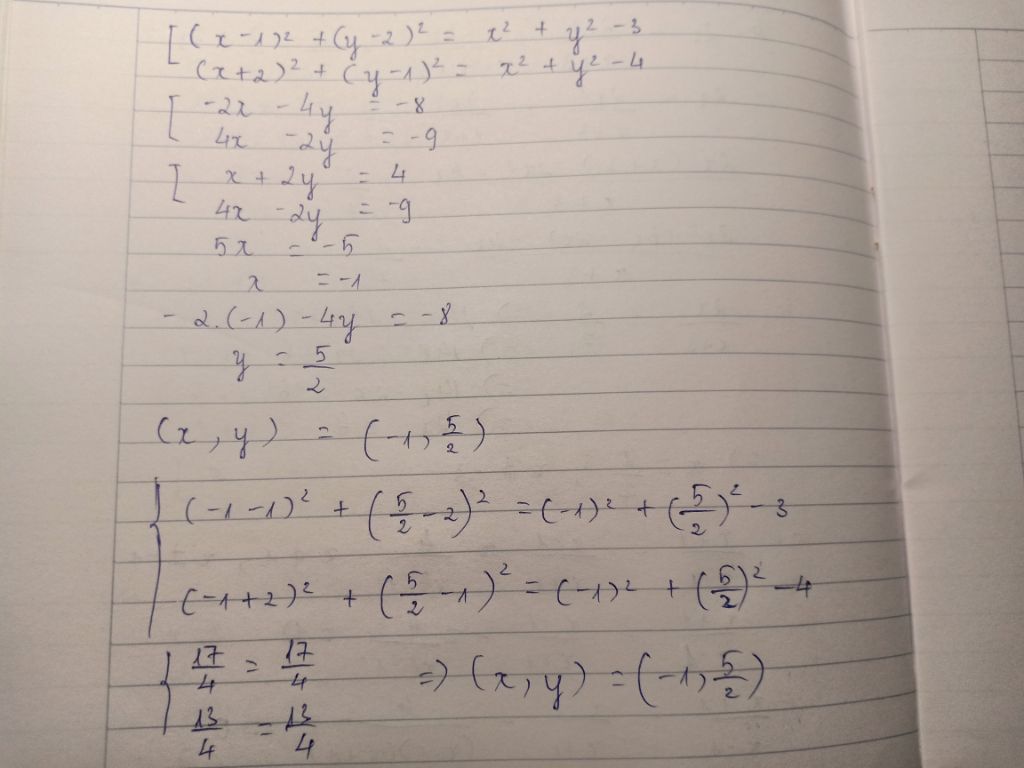 [ (x-1)² + (y-2)² = x² + y² -3
(x+2)² + (y-1)² = x² + y² -4
[ -2x -4y = -8
4x -2y = -9
[ x + 2y = 4
4x -2y = -9
5x = -5
x = -1
-2.(-1) -4y = -8
y = 5/2
(x, y) = (-1, 5/2)
{ (-1-1)² + (5/2 -2)² = (-1)² + (5/2)² -3
(-1+2)² + (5/2 -1)² = (-1)² + (5/2)² -4
{ 17/4 = 17/4 => (x, y) = (-1, 5/2)
13/4 = 13/4